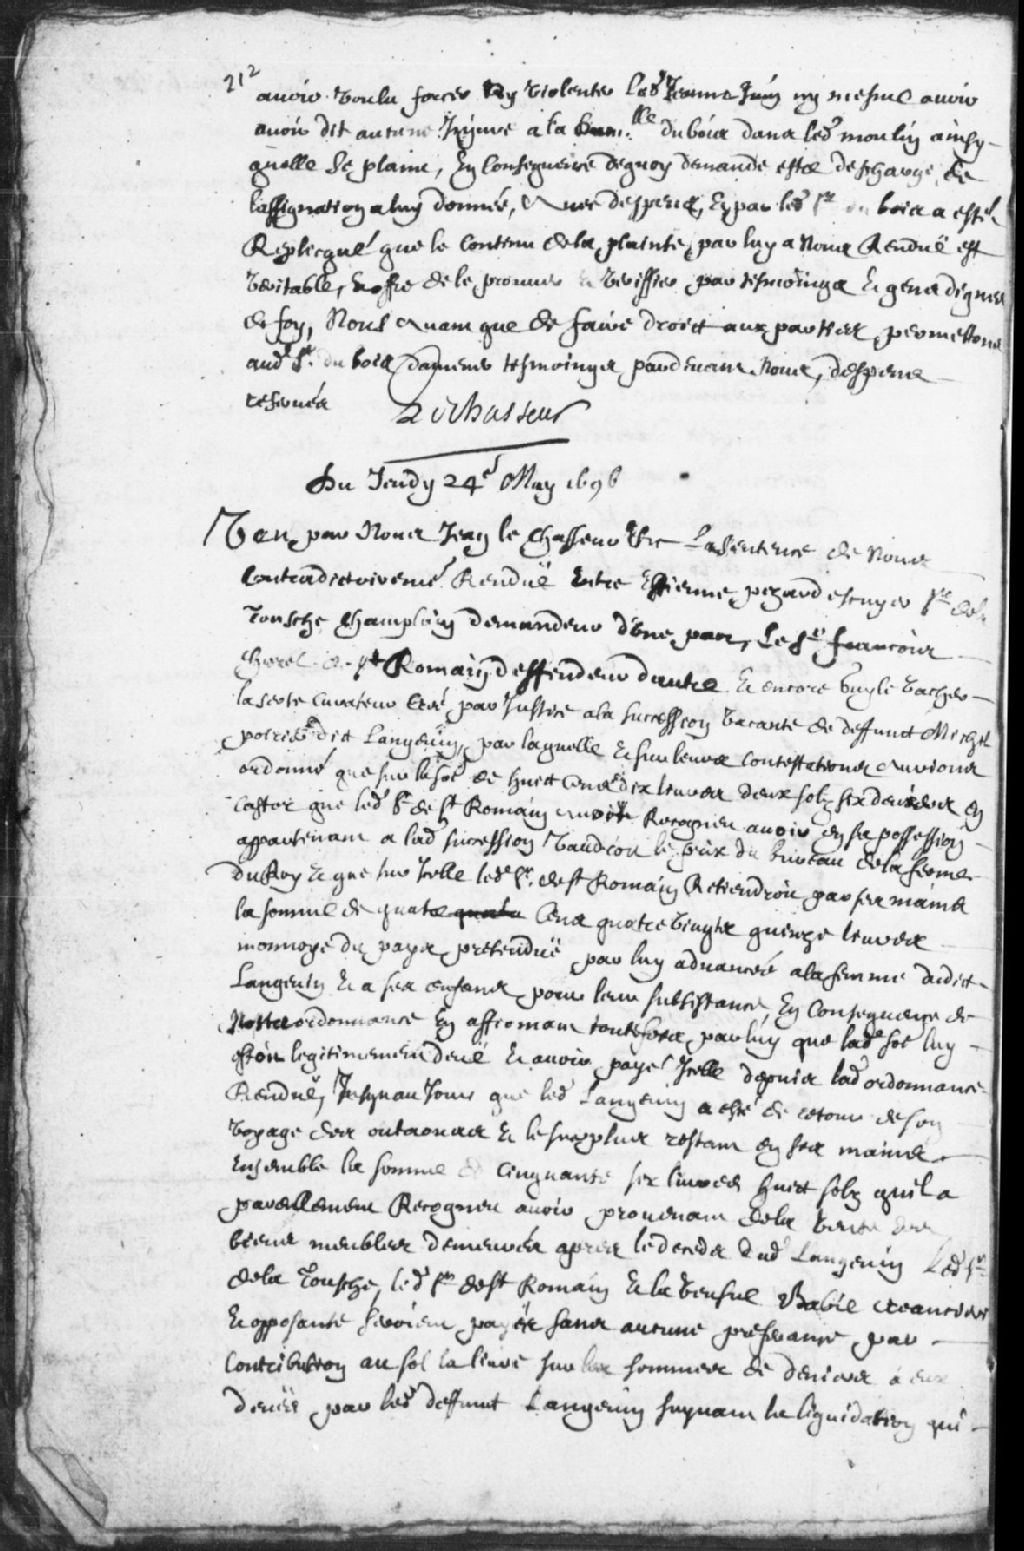 212
avoir voulu forcer ny violenter lad. Jeanne Juin ny mesme avoir
avoir dit aucune Injure a la lle duboia dans led. moulin ainsy
quelle se plaint, En consequence dequoy demande estre deschargé de
lassignation a luy donnée, avec despens, Et par led. Sr du bois a esté
Replicqué que le contenu de la plainte par luy a Nous Renduë est
veritable, Et offre de le prouver et veriffier par tesmoings et gens dignes
de foy, Nous avant que de faire droict aux parties permettons
aud. Sr. du bois damener tesmoings pardevant Nous, despens
reservés
Lechasseur
Du Jeudy 24e May 1696
Veu par Nous Jean le Chasseur &c La sentence de Nous
Contradictoiremt Renduë Entre Estienne pezard escuyer Sr dela
Tousche Champlain demandeur d'une part, Le Sr francois
chorel de St Romain deffendeur dautre Et encore
curateur creé par Justice a la succession vacante de deffunct Michel
poirier dit Langevin, par laquelle Et sur leurs contestations avrions
ordonné que sur la soe de huict cens dix livres deux solz six deniers en
castor que led. Sr de St Romain avoit Recognu avoir en sa possession
appartenant a lad. succession vaudroit le prix du bureau de la ferme
du Roy Et que sur Icelle led. Sr. de St Romain Retiendroit par ses mains
la somme de quatre cens quatre vingts quinze livres
monnoye du pays pretenduë par luy advancée a la femme dudict
Langevin Et a ses enfans pour leur subsistance, En consequence de
Nostre ordonnance En affirmant toutesfois par luy que lad. soe luy
estoit legitimement deuë Et avoir payé Icelle depuis lad. ordonnance
Renduë, Jusqu'au Jour que led. Langevin a esté de retour de son
voyage des outaouacs Et le surplus restant en ses mains
Ensemble la somme de cinquante six livres huict solz qu'il a
pareillement Recognu avoir provenant de la vente des
biens meubles demeurés apres le deceds dud. Langevin Led. Sr
de la Tousche, led. Sr de St Romain Et la veufve Babie creanciers
Et opposante seroient payés sans aucune preferance par
contribution au sol la livre sur les sommes de deniers à eux
deues par led. deffunct Langevin suyvant la liquidation qui